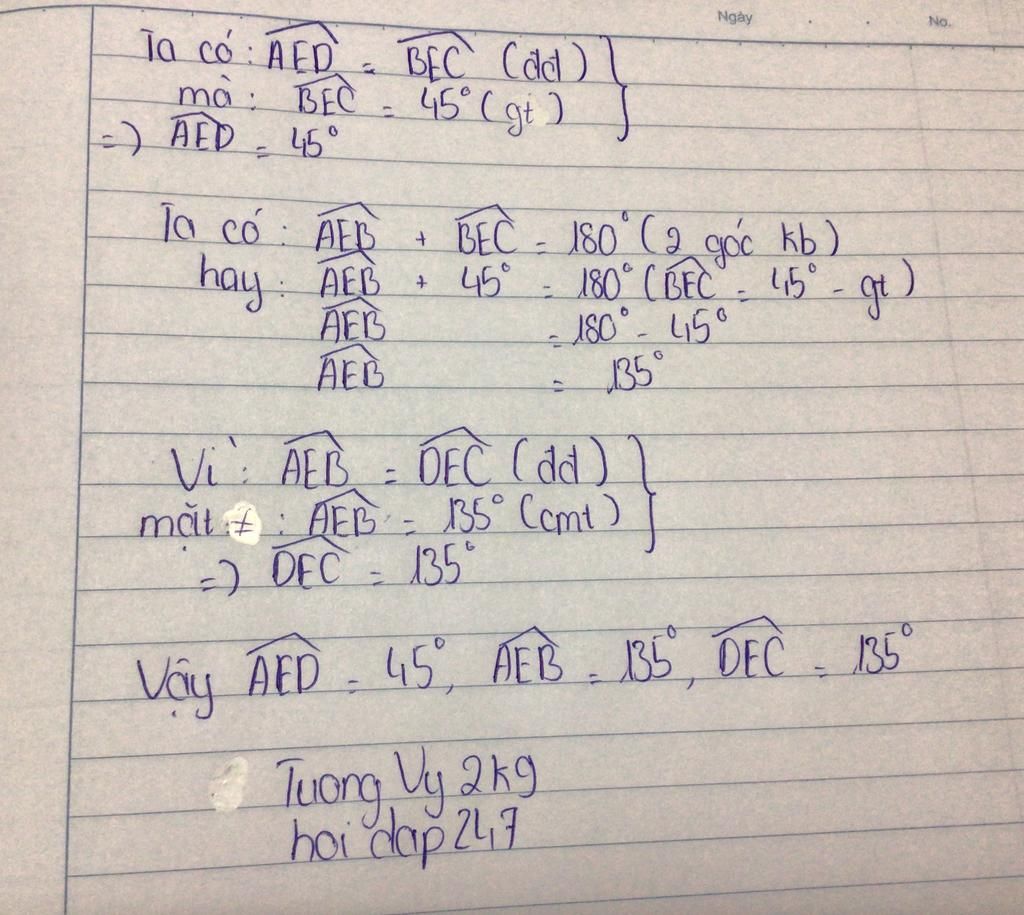 Ngày No.
Ta có: AED = BEC (đđ)
mà: BEC = 45° (gt)
=> AED = 45°
Ta có: AEB + BEC = 180° (2 góc kb)
hay: AEB + 45° = 180° (BEC = 45° - gt)
AEB = 180° - 45°
AEB = 135°
Vì: AEB = DEC (đđ)
mặt ≠: AEB = 135° (cmt)
=> DEC = 135°
Vậy AED = 45°, AEB = 135°, DEC = 135°
Tuong Vy 2kg
hoi dap 247